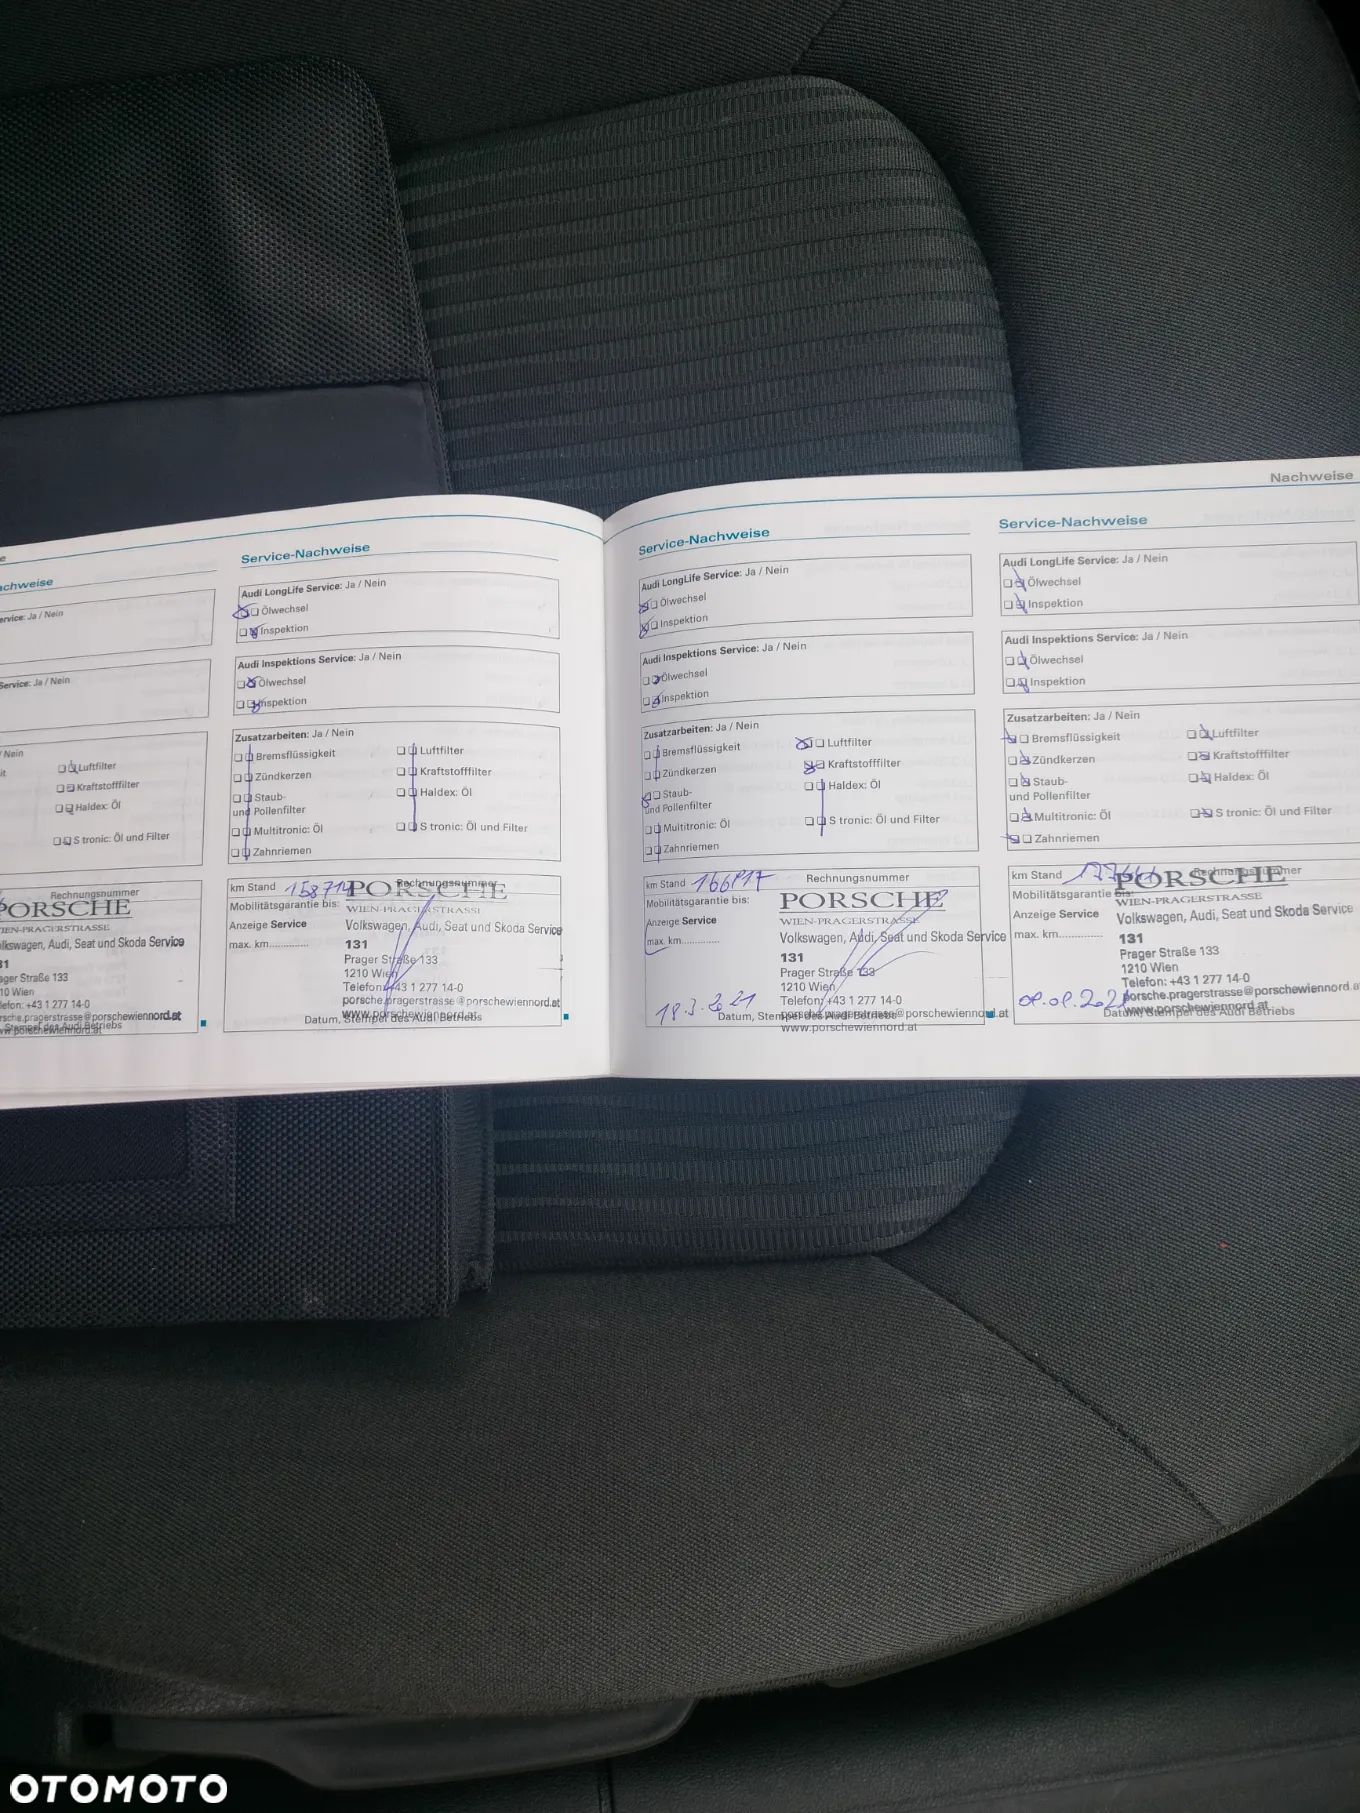 Nachweise
achweise
ervice: Ja / Nein
Service: Ja / Nein
/ Nein
Luftfilter
Kraftstofffilter
Haldex: Öl
S tronic: Öl und Filter
Rechnungsnummer
PORSCHE
WIEN-PRAGERSTRASSE
olkswagen, Audi, Seat und Skoda Service
31
ager Straße 133
10 Wien
lefon: +43 1 277 14-0
rsche.pragerstrasse@porschewiennord.at
Stempel des Audi Betriebs
www.porschewiennord.at
Service-Nachweise
Audi LongLife Service: Ja / Nein
Ölwechsel
Inspektion
Audi Inspektions Service: Ja / Nein
Ölwechsel
Inspektion
Zusatzarbeiten: Ja / Nein
Bremsflüssigkeit
Luftfilter
Zündkerzen
Kraftstofffilter
Staub-
und Pollenfilter
Haldex: Öl
Multitronic: Öl
S tronic: Öl und Filter
Zahnriemen
km Stand
Rechnungsnummer
PORSCHE
Mobilitätsgarantie bis:
WIEN-PRAGERSTRASSE
Anzeige Service
Volkswagen, Audi, Seat und Skoda Service
max. km.............
131
Prager Straße 133
1210 Wien
Telefon: +43 1 277 14-0
porsche.pragerstrasse@porschewiennord.at
www.porschewiennord.at
Datum, Stempel des Audi Betriebs
Service-Nachweise
Audi LongLife Service: Ja / Nein
Ölwechsel
Inspektion
Audi Inspektions Service: Ja / Nein
Ölwechsel
Inspektion
Zusatzarbeiten: Ja / Nein
Bremsflüssigkeit
Luftfilter
Zündkerzen
Kraftstofffilter
Staub-
und Pollenfilter
Haldex: Öl
Multitronic: Öl
S tronic: Öl und Filter
Zahnriemen
km Stand
Rechnungsnummer
Mobilitätsgarantie bis:
PORSCHE
WIEN-PRAGERSTRASSE
Anzeige Service
Volkswagen, Audi, Seat und Skoda Service
max. km.............
131
Prager Straße 133
1210 Wien
Telefon: +43 1 277 14-0
18.3.2021
porsche.pragerstrasse@porschewiennord.at
Datum, Stempel des Audi Betriebs
www.porschewiennord.at
Service-Nachweise
Audi LongLife Service: Ja / Nein
Ölwechsel
Inspektion
Audi Inspektions Service: Ja / Nein
Ölwechsel
Inspektion
Zusatzarbeiten: Ja / Nein
Bremsflüssigkeit
Luftfilter
Zündkerzen
Kraftstofffilter
Staub-
und Pollenfilter
Haldex: Öl
Multitronic: Öl
S tronic: Öl und Filter
Zahnriemen
km Stand
Rechnungsnummer
PORSCHE
Mobilitätsgarantie bis:
WIEN-PRAGERSTRASSE
Anzeige Service
Volkswagen, Audi, Seat und Skoda Service
max. km.............
131
Prager Straße 133
1210 Wien
Telefon: +43 1 277 14-0
porsche.pragerstrasse@porschewiennord.at
www.porschewiennord.at
Datum, Stempel des Audi Betriebs
OTOMOTO